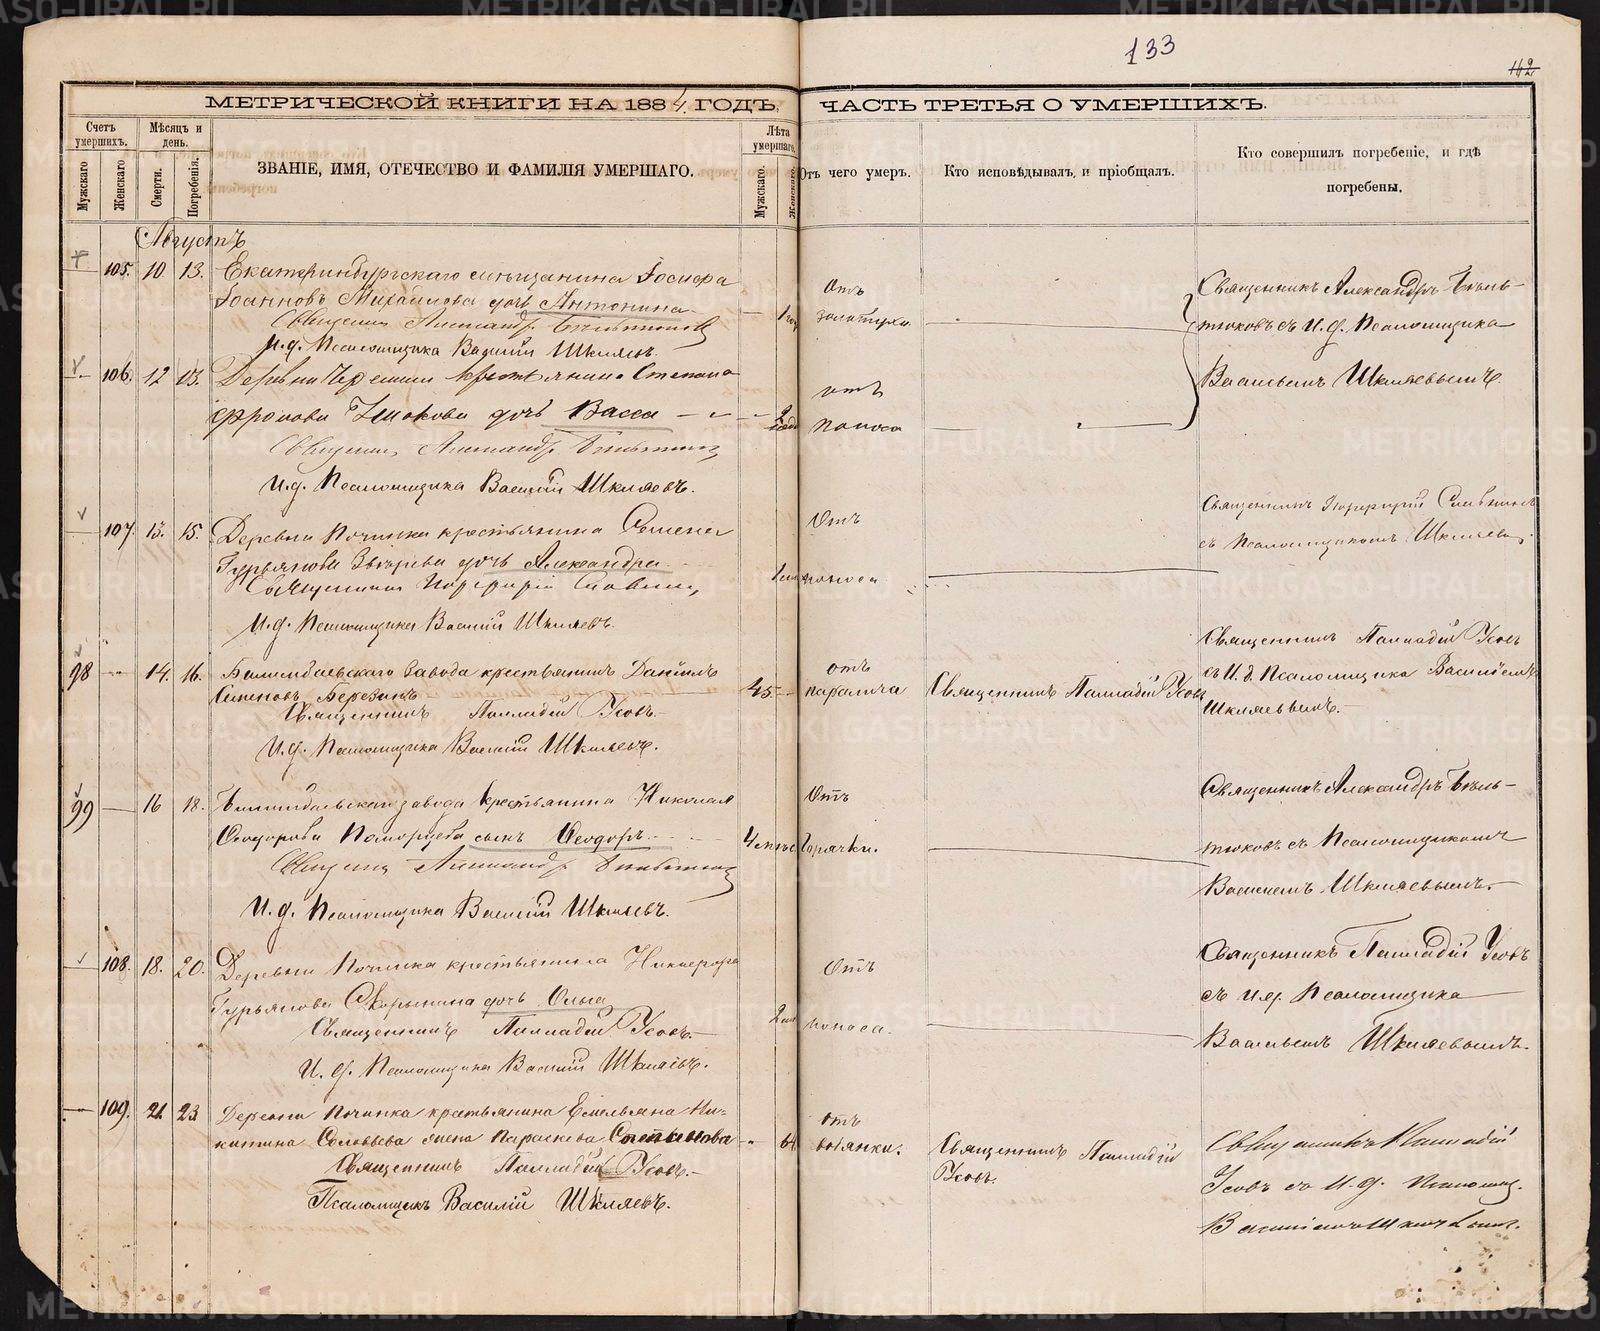 133
112
МЕТРИЧЕСКОЙ КНИГИ НА 1884 ГОДЪ, ЧАСТЬ ТРЕТЬЯ О УМЕРШИХЪ.
Счетъ умершихъ.
Мужскаго
Женскаго
Мѣсяцъ и день.
Смерти.
Погребенія.
ЗВАНІЕ, ИМЯ, ОТЕЧЕСТВО И ФАМИЛІЯ УМЕРШАГО.
Лѣта умершаго.
Мужскаго.
Женскаго.
Отъ чего умеръ.
Кто исповѣдывалъ, и пріобщалъ.
Кто совершилъ погребеніе, и гдѣ
погребены.
Августъ
105. 10 13. Екатеринбургскаго мѣщанина Іосифа
Іоаннова Михайлова дочь Антонина
Священник Александр
И.д. Псаломщика Василій Шкляевъ.
1 год
Отъ
Священникъ Александръ Бѣль-
тюковъ съ И.д. Псаломщика
Василіемъ Шкляевымъ.
106. 12 13. Деревни крестьянина Степана
дочь Васса
Священник Александр
И.д. Псаломщика Василій Шкляевъ.
2 года
отъ
поноса
107. 13. 15. Деревни Починка крестьянина Семена
Гурьянова Звѣрева дочь Александра
Священник Порфирій Славнин
И.д. Псаломщика Василій Шкляевъ.
Отъ
поноса
Священникъ Порфирій Славнинъ
съ Псаломщикомъ Шкляевым.
98 14. 16. Билимбаевскаго Завода крестьянинъ Даніилъ
Семеновъ Березинъ
Священникъ Палладій Усовъ.
И.д. Псаломщика Василій Шкляевъ.
45.
отъ
паралича
Священникъ Палладій Усовъ
Священникъ Палладій Усовъ
съ И.д. Псаломщика Василіемъ
Шкляевымъ.
99 16 18. Билимбаевскаго завода крестьянина Николая
Ѳеодорова Поморцева сынъ Ѳеодоръ.
Священник Александр
И.д. Псаломщика Василій Шкляевъ.
4 мѣс
Отъ
горячки.
Священникъ Александръ Бѣль-
тюковъ съ Псаломщикомъ
Василіемъ Шкляевымъ.
108. 18. 20. Деревни Починка крестьянина Никифора
Гурьянова Скорынина дочь Анна
Священникъ Палладій Усовъ.
И.д. Псаломщика Василій Шкляевъ.
Отъ
поноса.
Священникъ Палладій Усовъ
съ И.д. Псаломщика
Василіемъ Шкляевымъ.
109. 21. 23 Деревни Починка крестьянина Емельяна Ни-
китина Соловьева жена Параскева Степанова
Священникъ Палладій Усовъ.
Псаломщикъ Василій Шкляевъ.
64
отъ
водянки.
Священникъ Палладій
Усовъ.
Священникъ Палладій
Усовъ съ И.д. Псаломщ.
METRIKI.GASO-URAL.RU